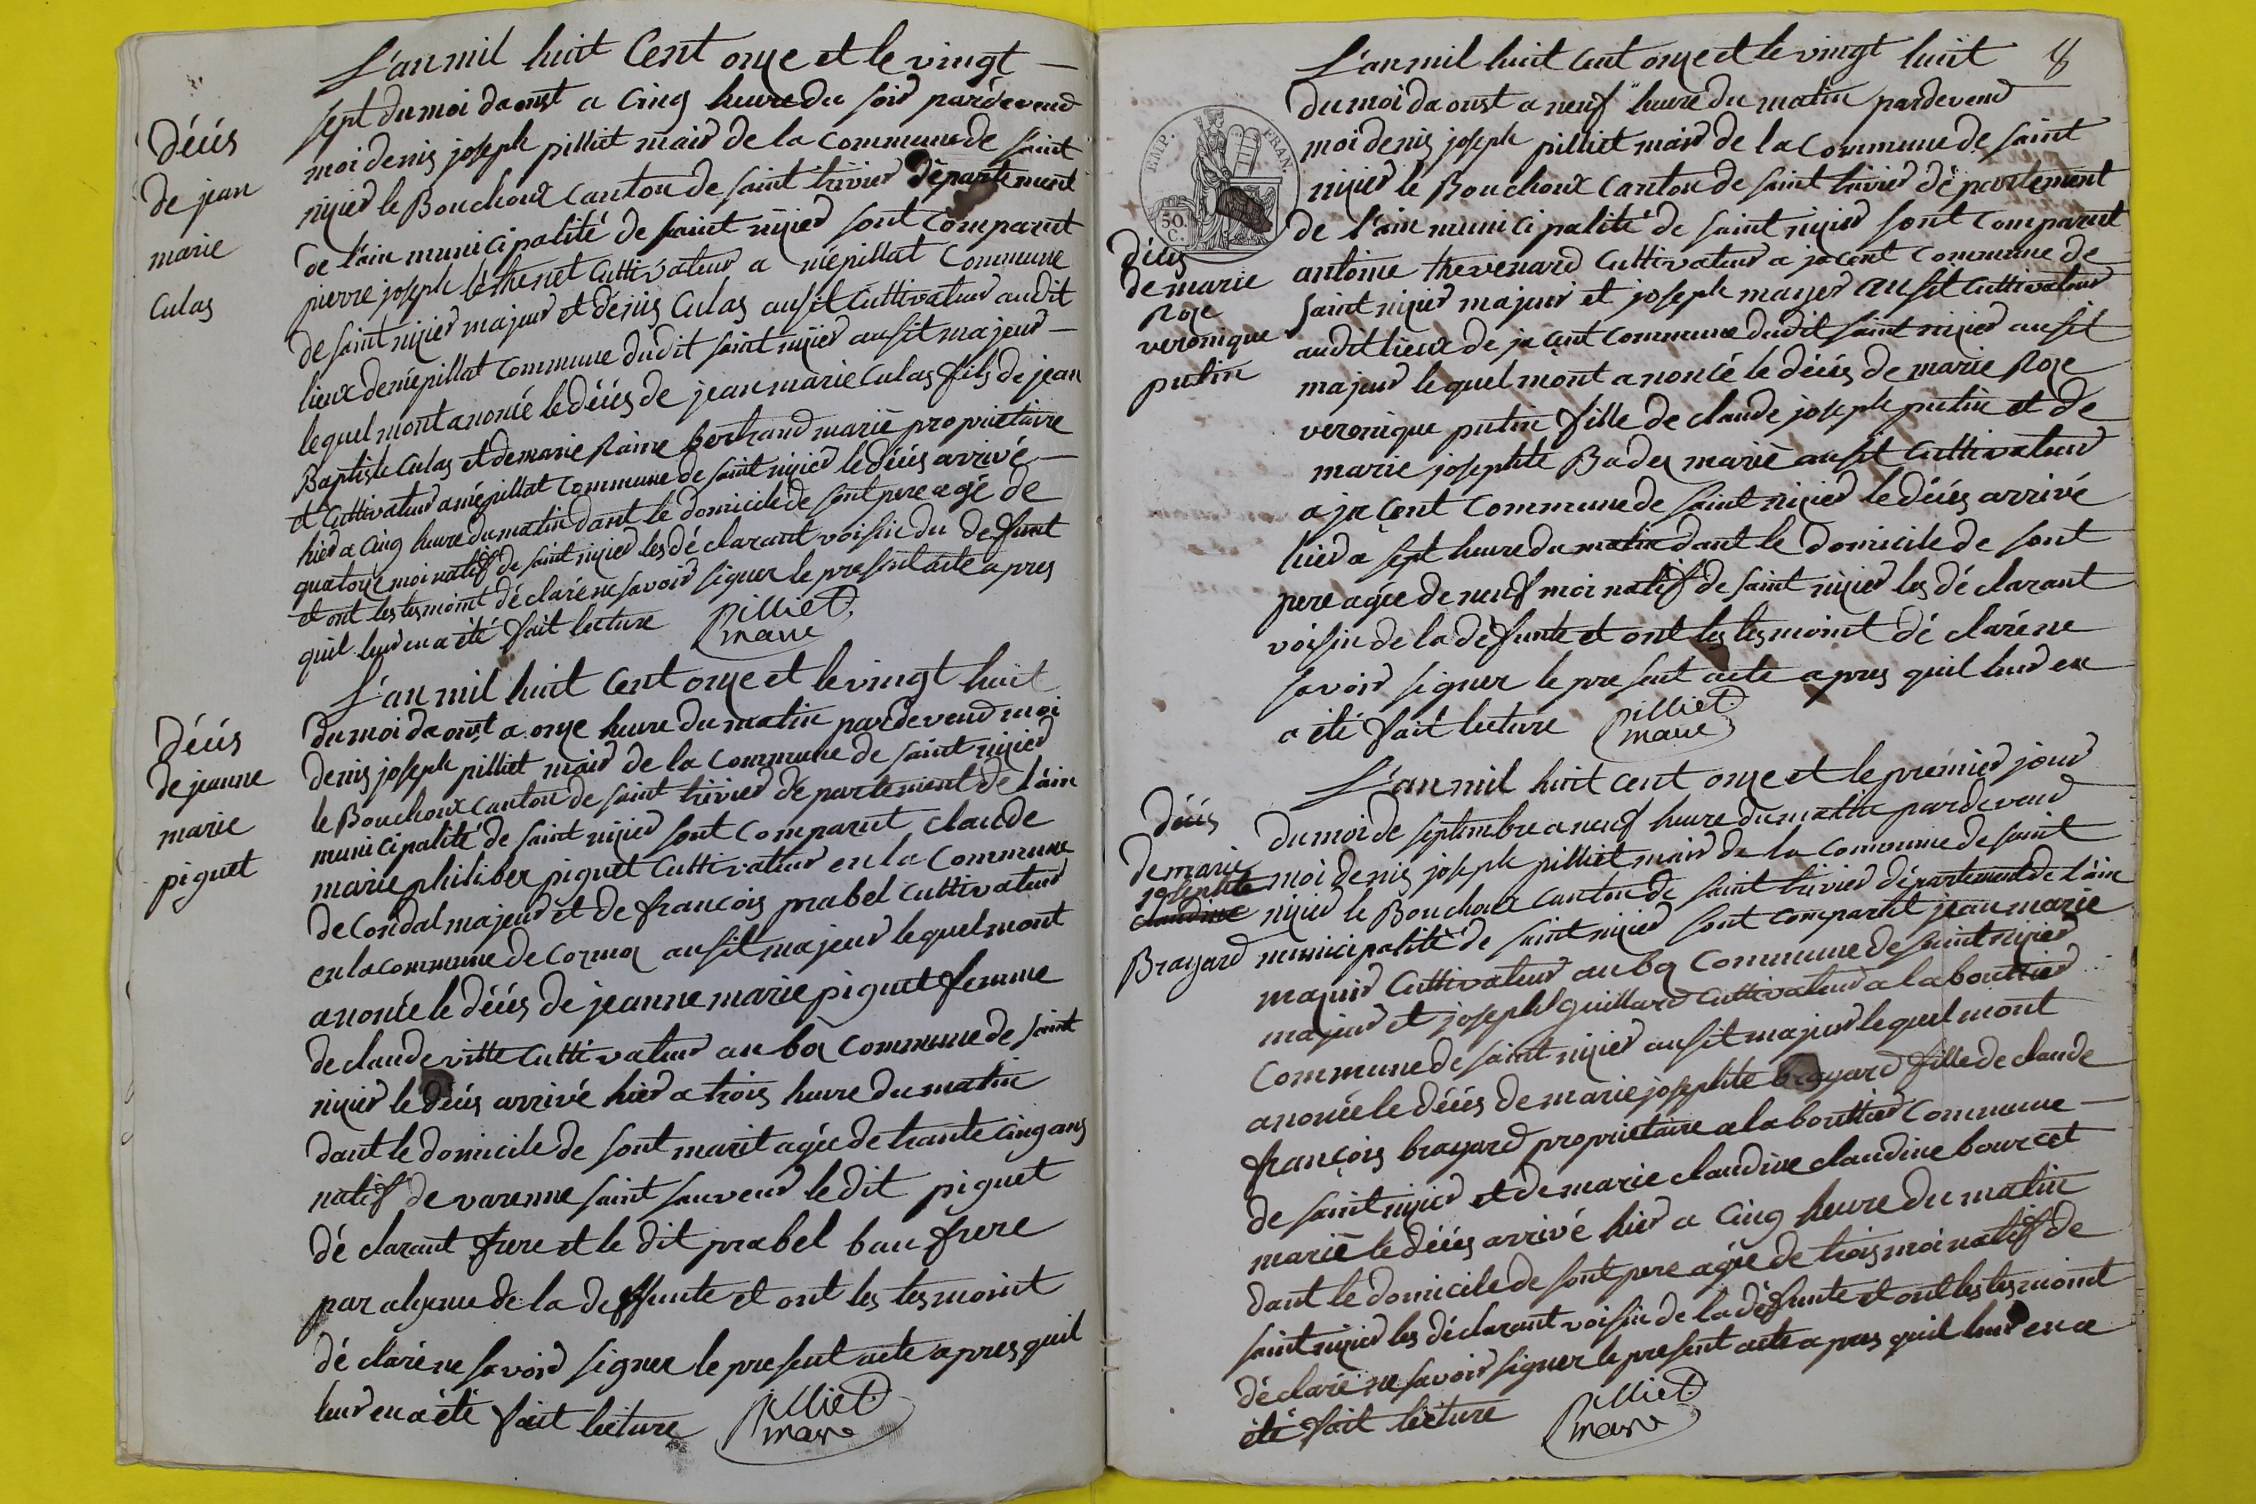 L'an mil huit Cent onze et le vingt
sept du moi daoust a Cinq heure du soir pardevend
Décés
de jean
marie
Culas
moi denis joseph pilliet mair de la Commune de saint
nizier le Bouchoux Canton de saint trivier département
de l'ain municipalité de saint nizier sont Comparut
pierre joseph léthenet Cultivateur a népillat Commune
de saint nizier majeur et dénis Culas ausit Cultivateur audit
lieux de népillat Commune dudit saint nizier ausit majeur
le quel mont anoncé le décés de jean marie Culas fils de jean
Baptiste Culas et de marie Raine bertrand marié propriétaire
et Cultivateur a népillat Commune de saint nizier le décés arrivé
hier a Cinq heure du matin dant le domicile de sont pere agé de
quatorze moi natif de saint nizier les déclarant voisin du defunt
et ont les tesmoint déclaré ne savoir signer le present acte apres
quil leur en a été fait lecture Pilliet
maire
L'an mil huit Cent onze et le vingt huit
Décés
de jeanne
marie
piguet
du moi daoust a onze heure du matin pardevend moi
denis joseph pilliet mair de la Commune de saint nizier
le Bouchoux Canton de saint trivier département de l'ain
municipalité de saint nizier sont Comparut claude
marie philiber piguet Cultivateur en la Commune
de Condal majeur et de francois prabel Cultivateur
en la commune de Cormoz ausit majeur le quel mont
anoncé le décés de jeanne marie piguet femme
de claude ville Cultivateur au boz Commune de saint
nizier le décés arrivé hier a trois heure du matin
dant le domicile de sont marit agée de trante Cinq ans
natif de varenne saint sauveur le dit piguet
déclarant frere et le dit prabel bau frere
par alyenue de la deffunte et ont les tesmoint
déclaré ne savoir signer le present acte apres quil
leur en a été fait lecture Pilliet
maire
8
L'an mil huit Cent onze et le vingt huit
du moi daoust a neuf heure du matin pardevend
moi denis joseph pilliet mair de la Commune de saint
nizier le Bouchoux Canton de saint trivier département
de l'ain municipalité de saint nizier sont Comparut
TIMP. FRAN.
50.
C.
Décés
de marie
Roze
veronique
putin
antoine thevenard Cultivateur a jacent Commune de
saint nizier majeur et joseph mayer ausit Cultivateur
audit lieux de jacent Commune dudit saint nizier ausit
majeur le quel mont anoncé le décés de marie Roze
veronique putin fille de claude joseph putin et de
marie josephte Badez marié ausit Cultivateur
a jacent Commune de saint nizier le décés arrivé
hier a sept heure du matin dant le domicile de sont
pere agée de neuf moi natif de saint nizier les déclarant
voisin de la défunte et ont les tesmoint déclaré ne
savoir signer le present acte apres quil leur en
a été fait lecture Pilliet
maire
L'an mil huit Cent onze et le premier jour
Décés
de marie
josephte
claudine
Brayard
du moi de septembre a neuf heure du matin pardevend
moi denis joseph pilliet mair de la Commune de saint
nizier le Bouchoux Canton de saint trivier département de l'ain
municipalité de saint nizier sont Comparut jean marie
majeur Cultivateur au boz Commune de saint nizier
majeur et joseph guillard Cultivateur a la bouttier
Commune de saint nizier ausit majeur le quel mont
anoncé le décés de marie josephte brayard fille de claude
françois brayard proprietaire a la bouttier Commune
de saint nizier et de marie claudine claudine bourcet
marié le décés arrivé hier a Cinq heure du matin
dant le domicile de sont pere agée de trois moi natif de
saint nizier les déclarant voisin de la défunte et ont les tesmoint
déclaré ne savoir signer le present acte apres quil leur en a
été fait lecture Pilliet
maire